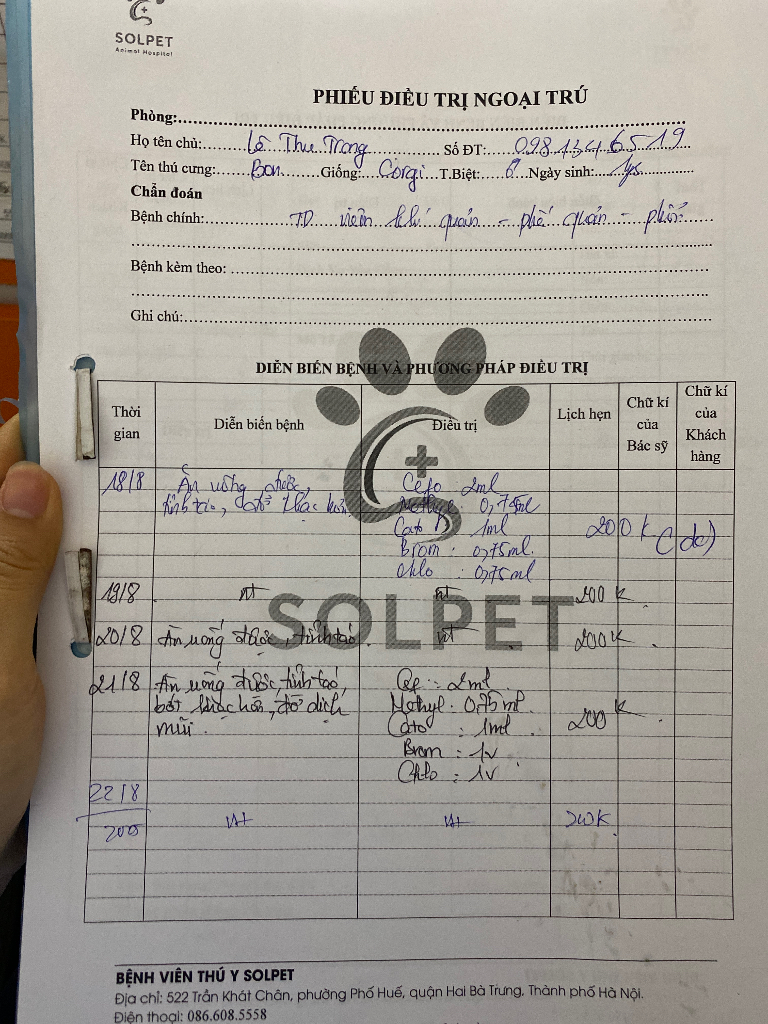 SOLPET
Animal Hospital
PHIẾU ĐIỀU TRỊ NGOẠI TRÚ
Phòng:
Họ tên chủ: Lê Thu Trang Số ĐT: 0981346519
Tên thú cưng: Bon Giống: Corgi T.Biệt: Ngày sinh: 1ys
Chẩn đoán
Bệnh chính: TD viêm khí quản - phế quản - phổi
Bệnh kèm theo:
Ghi chú:
DIỄN BIẾN BỆNH VÀ PHƯƠNG PHÁP ĐIỀU TRỊ
Thời gian Diễn biến bệnh Điều trị Lịch hẹn Chữ kí của Bác sỹ Chữ kí của Khách hàng
18/8 Ăn uống được, Cefo 2ml
tỉnh táo, Methyl: 0,75ml
Cato 1ml 200k
Brom: 0,75ml.
Chlo : 0,75ml
19/8 nt nt 200k.
20/8 Ăn uống được, tỉnh táo. nt 200k
21/8 Ăn uống được, tỉnh táo, Cef : 2ml
bớt khạc hơn, đỡ dịch Methyl. 0,75ml.
mũi. Cato : 1ml 200k.
Brom : 1v
Chlo : 1v
22/8 nt nt 200K
SOLPET
BỆNH VIỆN THÚ Y SOLPET
Địa chỉ: 522 Trần Khát Chân, phường Phố Huế, quận Hai Bà Trưng, Thành phố Hà Nội.
Điện thoại: 086.608.5558